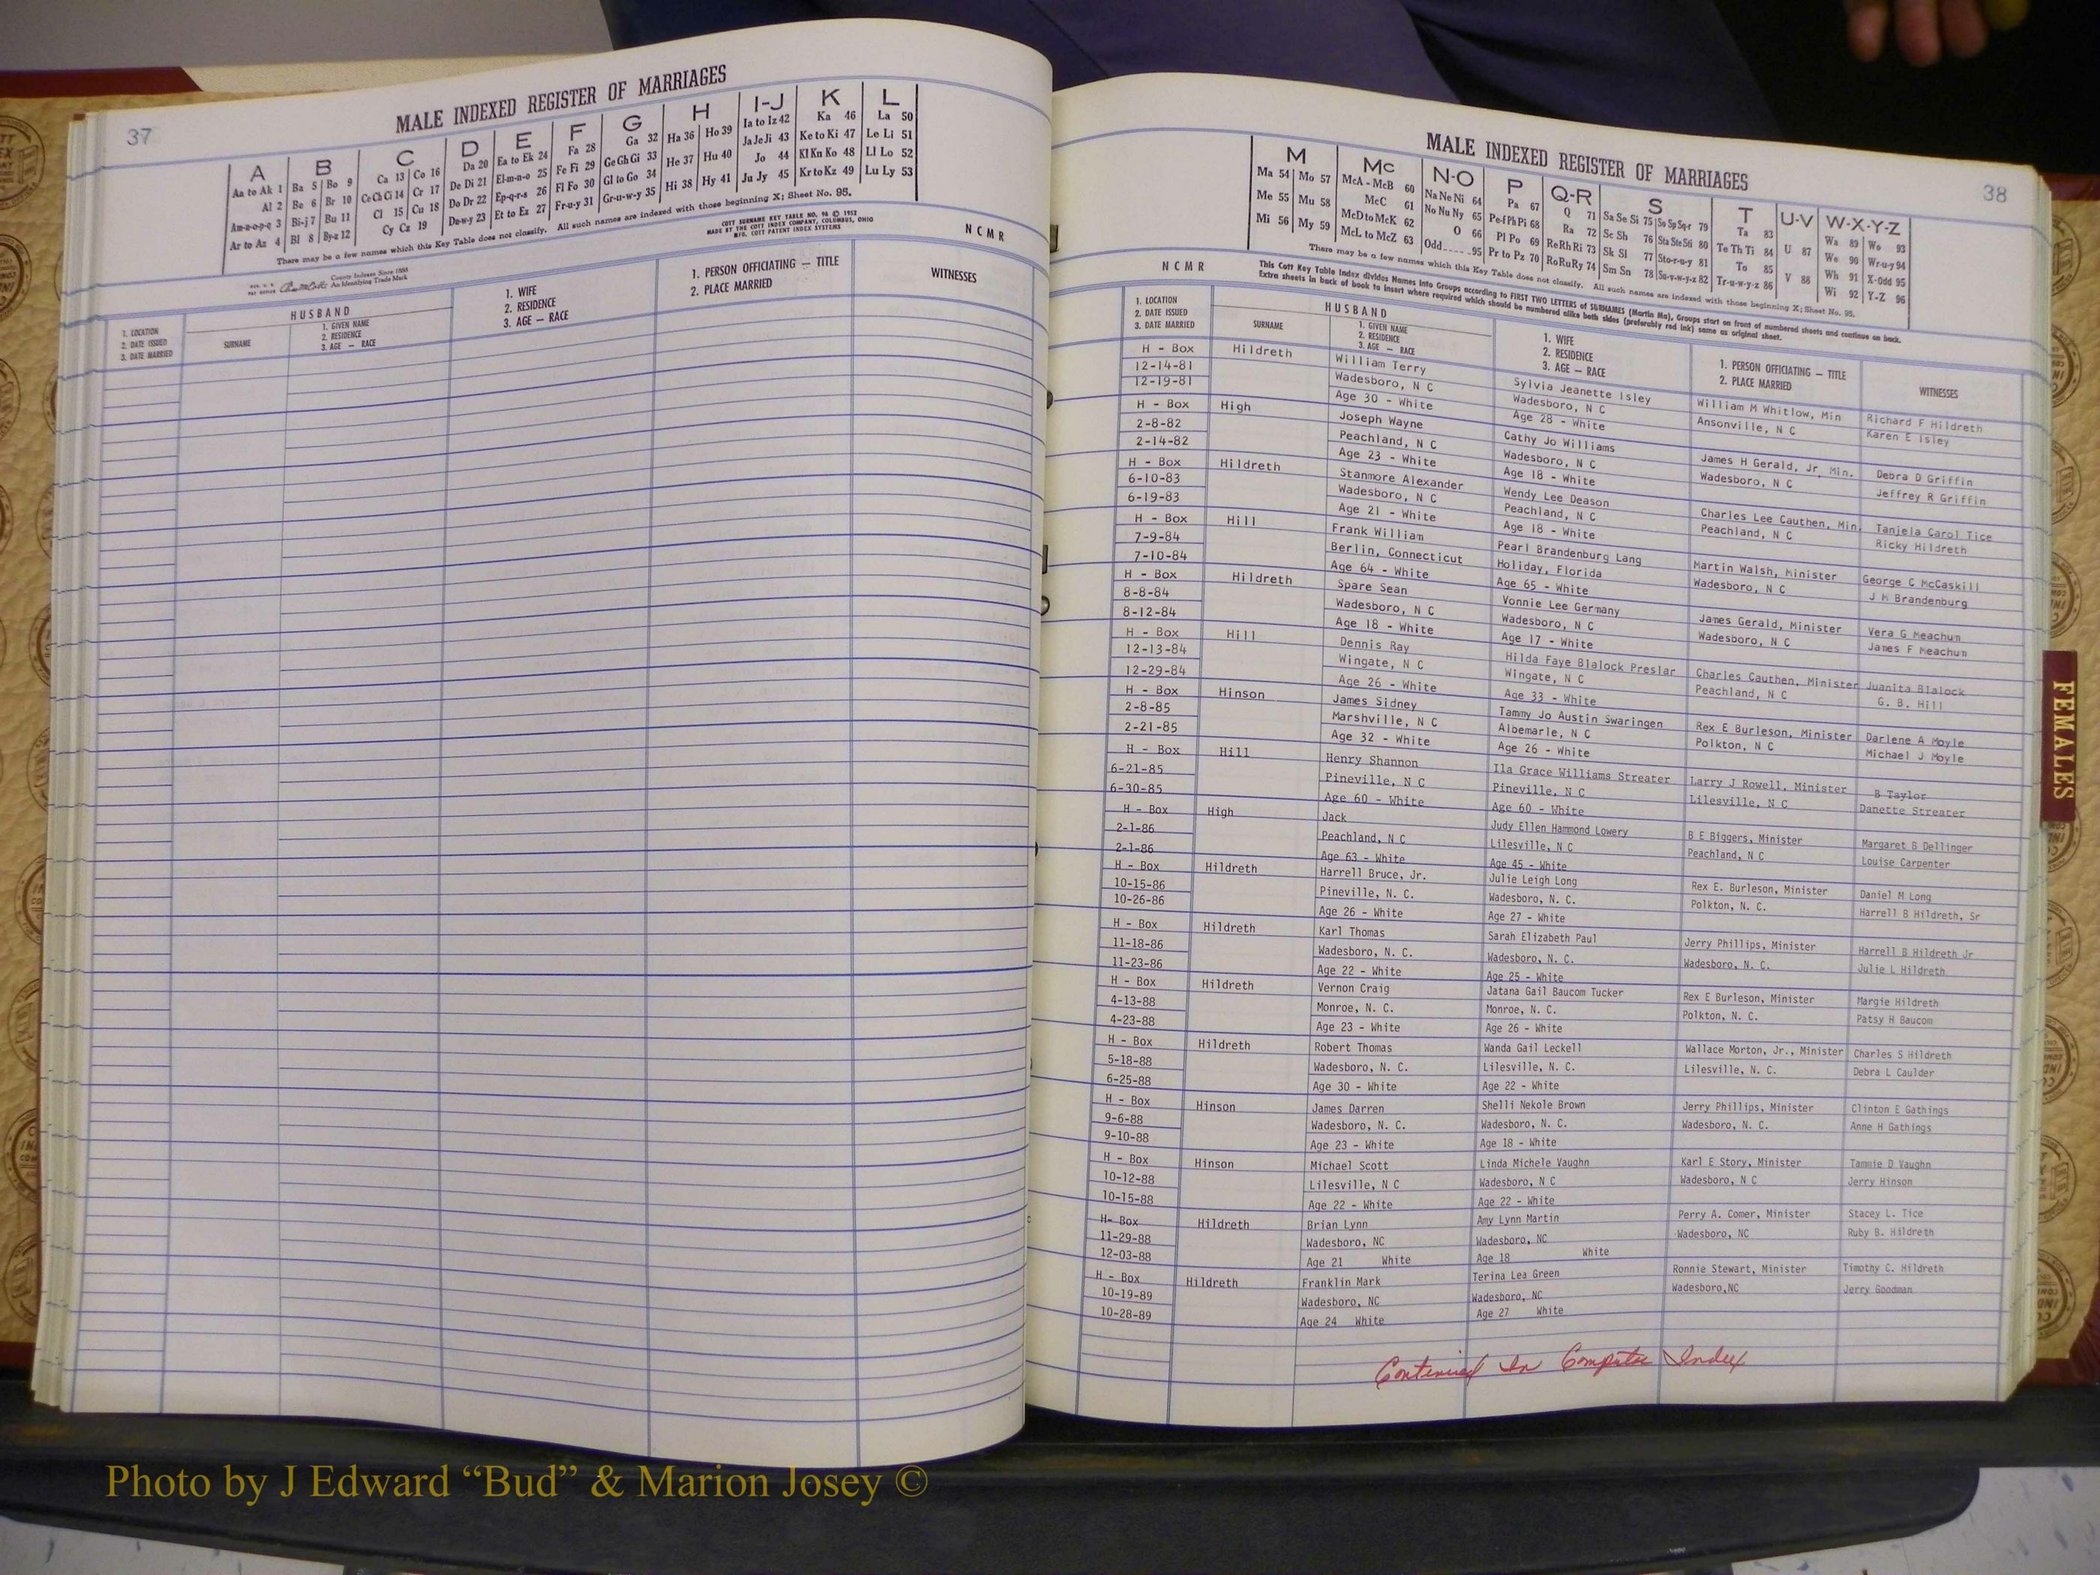 37
MALE INDEXED REGISTER OF MARRIAGES
A B C D E F G H I-J K L
Aa to Ak 1 Ba 5 Bo 9 Ca 13 Co 16 Da 20 Ea to Ek 24 Fa 28 Ga 32 Ha 36 Ho 39 Ia to Iz 42 Ka 46 La 50
Al 2 Be 6 Br 10 Ce Ch Ci 14 Cr 17 De Di 21 El-m-n-o 25 Fe Fi 29 Ge Gh Gi 33 He 37 Hu 40 Ja Je Ji 43 Ke to Ki 47 Le Li 51
Am-n-o-p-q 3 Bi-j 7 Bu 11 Cl 15 Cu 18 Do Dr 22 Ep-q-r-s 26 Fl Fo 30 Gl to Go 34 Hi 38 Hy 41 Jo 44 Kl Kn Ko 48 Ll Lo 52
Ar to Az 4 Bl 8 By-z 12 Cy Cz 19 De-w-y 23 Et to Ez 27 Fr-u-y 31 Gr-u-w-y 35 Ju Jy 45 Kr to Kz 49 Lu Ly 53
There may be a few names which this Key Table does not classify. All such names are indexed with those beginning X; Sheet No. 95.
County Indexes Since 1888
An Identifying Trade Mark
COTT SURNAME KEY TABLE NO. 96 © 1952
MADE BY THE COTT INDEX COMPANY, COLUMBUS, OHIO
MFG. COTT PATENT INDEX SYSTEMS
N C M R
1. LOCATION
2. DATE ISSUED
3. DATE MARRIED
HUSBAND
SURNAME
1. GIVEN NAME
2. RESIDENCE
3. AGE — RACE
1. WIFE
2. RESIDENCE
3. AGE — RACE
1. PERSON OFFICIATING — TITLE
2. PLACE MARRIED
WITNESSES
38
MALE INDEXED REGISTER OF MARRIAGES
M Mc N-O P Q-R S T U-V W-X-Y-Z
Ma 54 Mo 57 McA - McB 60 Na Ne Ni 64 Pa 67 Q 71 Sa Se Si 75 So Sp Sq-r 79 Ta 83 U 87 Wa 89 Wo 93
Me 55 Mu 58 McC 61 No Nu Ny 65 Pe-f Ph Pi 68 Ra 72 Sc Sh 76 Sta Ste Sti 80 Te Th Ti 84 We 90 Wr-u-y 94
Mi 56 My 59 McD to McK 62 O 66 Pl Po 69 Re Rh Ri 73 Sk Sl 77 Sto-r-u-y 81 To 85 V 88 Wh 91 X-Odd 95
McL to McZ 63 Odd 95 Pr to Pz 70 Ro Ru Ry 74 Sm Sn 78 Su-v-w-y-z 82 Tr-u-w-y-z 86 Wi 92 Y-Z 96
There may be a few names which this Key Table does not classify. All such names are indexed with those beginning X; Sheet No. 95.
This Cott Key Table Index divides Names into Groups according to FIRST TWO LETTERS of SURNAMES (Martin Ma). Groups start on front of numbered sheets and continue on back.
Extra sheets in back of book to insert where required which should be numbered alike both sides (preferably red ink) same as original sheet.
N C M R
1. LOCATION
2. DATE ISSUED
3. DATE MARRIED
HUSBAND
SURNAME
1. GIVEN NAME
2. RESIDENCE
3. AGE — RACE
1. WIFE
2. RESIDENCE
3. AGE — RACE
1. PERSON OFFICIATING — TITLE
2. PLACE MARRIED
WITNESSES
H - Box Hildreth William Terry Sylvia Jeanette Isley William M Whitlow, Min Richard F Hildreth
12-14-81 Wadesboro, N C Wadesboro, N C Ansonville, N C Karen E Isley
12-19-81 Age 30 - White Age 28 - White
H - Box High Joseph Wayne Cathy Jo Williams James H Gerald, Jr, Min. Debra D Griffin
2-8-82 Peachland, N C Wadesboro, N C Wadesboro, N C Jeffrey R Griffin
2-14-82 Age 23 - White Age 18 - White
H - Box Hildreth Stanmore Alexander Wendy Lee Deason Charles Lee Cauthen, Min. Taniela Carol Tice
6-10-83 Wadesboro, N C Peachland, N C Peachland, N C Ricky Hildreth
6-19-83 Age 21 - White Age 18 - White
H - Box Hill Frank William Pearl Brandenburg Lang Martin Walsh, Minister George C McCaskill
7-9-84 Berlin, Connecticut Holiday, Florida Wadesboro, N C J M Brandenburg
7-10-84 Age 64 - White Age 65 - White
H - Box Hildreth Spare Sean Vonnie Lee Germany James Gerald, Minister Vera G Meachum
8-8-84 Wadesboro, N C Wadesboro, N C Wadesboro, N C James F Meachum
8-12-84 Age 18 - White Age 17 - White
H - Box Hill Dennis Ray Hilda Faye Blalock Preslar Charles Cauthen, Minister Juanita Blalock
12-13-84 Wingate, N C Wingate, N C Peachland, N C G. B. Hill
12-29-84 Age 26 - White Age 33 - White
H - Box Hinson James Sidney Tammy Jo Austin Swaringen Rex E Burleson, Minister Darlene A Moyle
2-8-85 Marshville, N C Albemarle, N C Polkton, N C Michael J Moyle
2-21-85 Age 32 - White Age 26 - White
H - Box Hill Henry Shannon Ila Grace Williams Streater Larry J Rowell, Minister B Taylor
6-21-85 Pineville, N C Pineville, N C Lilesville, N C Danette Streater
6-30-85 Age 60 - White Age 60 - White
H - Box High Jack Judy Ellen Hammond Lowery B E Biggers, Minister Margaret B Dellinger
2-1-86 Peachland, N C Lilesville, N C Peachland, N C Louise Carpenter
2-1-86 Age 63 - White Age 45 - White
H - Box Hildreth Harrell Bruce, Jr. Julie Leigh Long Rex E. Burleson, Minister Daniel M Long
10-15-86 Pineville, N. C. Wadesboro, N. C. Polkton, N. C. Harrell B Hildreth, Sr
10-26-86 Age 26 - White Age 27 - White
H - Box Hildreth Karl Thomas Sarah Elizabeth Paul Jerry Phillips, Minister Harrell B Hildreth Jr
11-18-86 Wadesboro, N. C. Wadesboro, N. C. Wadesboro, N. C. Julie L Hildreth
11-23-86 Age 22 - White Age 25 - White
H - Box Hildreth Vernon Craig Jatana Gail Baucom Tucker Rex E Burleson, Minister Margie Hildreth
4-13-88 Monroe, N. C. Monroe, N. C. Polkton, N. C. Patsy H Baucom
4-23-88 Age 23 - White Age 26 - White
H - Box Hildreth Robert Thomas Wanda Gail Leckell Wallace Morton, Jr., Minister Charles S Hildreth
5-18-88 Wadesboro, N. C. Lilesville, N. C. Lilesville, N. C. Debra L Caulder
6-25-88 Age 30 - White Age 22 - White
H - Box Hinson James Darren Shelli Nekole Brown Jerry Phillips, Minister Clinton E Gathings
9-6-88 Wadesboro, N. C. Wadesboro, N. C. Wadesboro, N. C. Anne H Gathings
9-10-88 Age 23 - White Age 18 - White
H - Box Hinson Michael Scott Linda Michele Vaughn Karl E Story, Minister Tammie D Vaughn
10-12-88 Lilesville, N C Wadesboro, N C Wadesboro, N C Jerry Hinson
10-15-88 Age 22 - White Age 22 - White
H- Box Hildreth Brian Lynn Amy Lynn Martin Perry A. Comer, Minister Stacey L. Tice
11-29-88 Wadesboro, NC Wadesboro, NC Wadesboro, NC Ruby B. Hildreth
12-03-88 Age 21 White Age 18 White
H - Box Hildreth Franklin Mark Terina Lea Green Ronnie Stewart, Minister Timothy C. Hildreth
10-19-89 Wadesboro, NC Wadesboro, NC Wadesboro,NC Jerry Goodman
10-28-89 Age 24 White Age 27 White
Continued In Computer Index
FEMALES
Photo by J Edward “Bud” & Marion Josey ©